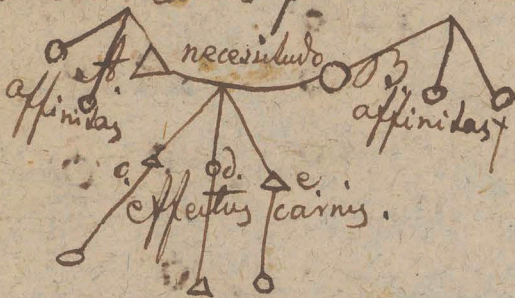 A. necessitudo B.
affinitas affinitas
c. d. e
effectus carnis.